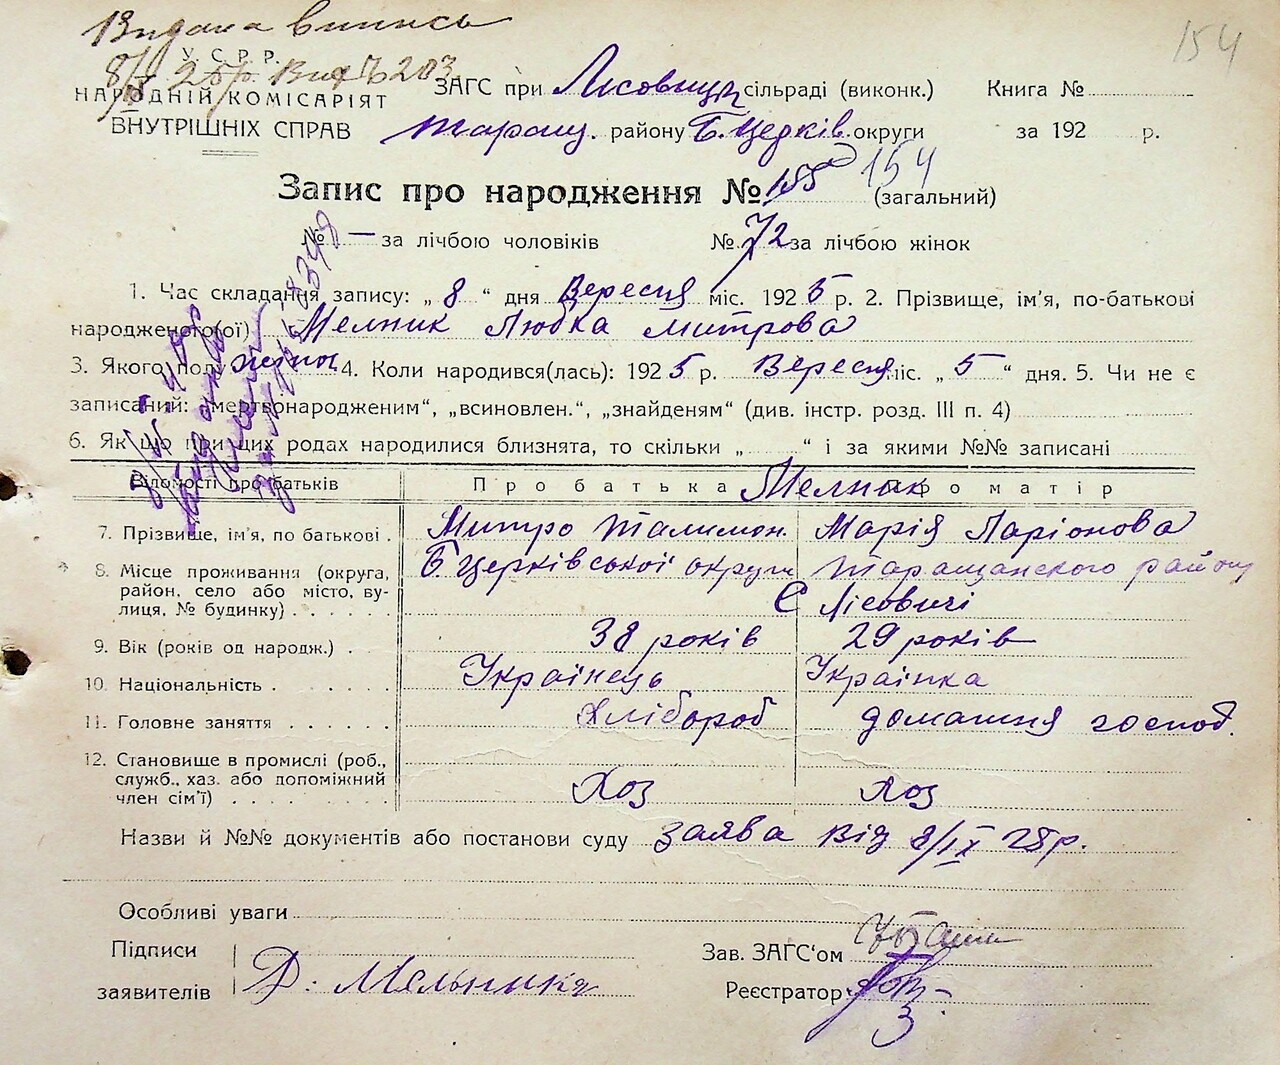 Видана випись
154
У. С. Р. Р.
8/IX 25 р. Вих № 203
НАРОДНІЙ КОМІСАРІЯТ
ВНУТРІШНІХ СПРАВ
ЗАГС при Лісовицьк сільраді (виконк.) Книга №
Таращ. району Б. Церків. округи за 192 р.
Запис про народження № 155 154 (загальний)
№ — за лічбою чоловіків № 72 за лічбою жінок
1. Час складання запису: „ 8 “ дня Вересня міс. 1925 р. 2. Прізвище, ім'я, по-батькові
народженого(ої) Мелник Любка Митрова
3. Якого полу жіноч 4. Коли народився(лась): 1925 р. Вересня міс. „ 5 “ дня. 5. Чи не є
записаний: „мертвонародженим“, „всиновлен.“, „знайденям“ (див. інстр. розд. III п. 4)
6. Як що при цих родах народилися близнята, то скільки „ “ і за якими №№ записані
Відомості про батьків Про батька Мелник Про матір
7. Прізвище, ім'я, по батькові . Митро Талимон. Марія Ларіонова
8. Місце проживання (округа, район, село або місто, вулиця, № будинку) . Б Церківської округи Таращанского району
С Лісовичі
9. Вік (років од народж.) . 38 років 29 років
10. Національність . Українець Українка
11. Головне заняття . Хлібороб домашня господ.
12. Становище в промислі (роб., служб., хаз. або допоміжний член сім'ї) . Хоз Хоз
Назви й №№ документів або постанови суду заява від 8/IX 25 р.
Особливі уваги
Підписи
заявителів Д. Мельника
Зав. ЗАГС'ом
Реєстратор